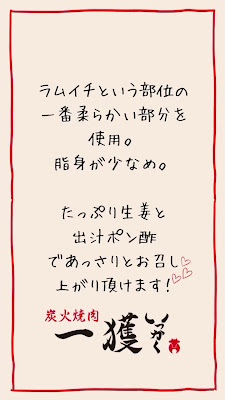 ラムイチという部位の
一番柔らかい部分を
使用。
脂身が少なめ。
たっぷり生姜と
出汁ポン酢
であっさりとお召し
上がり頂けます!
炭火焼肉
一獲
いっかく